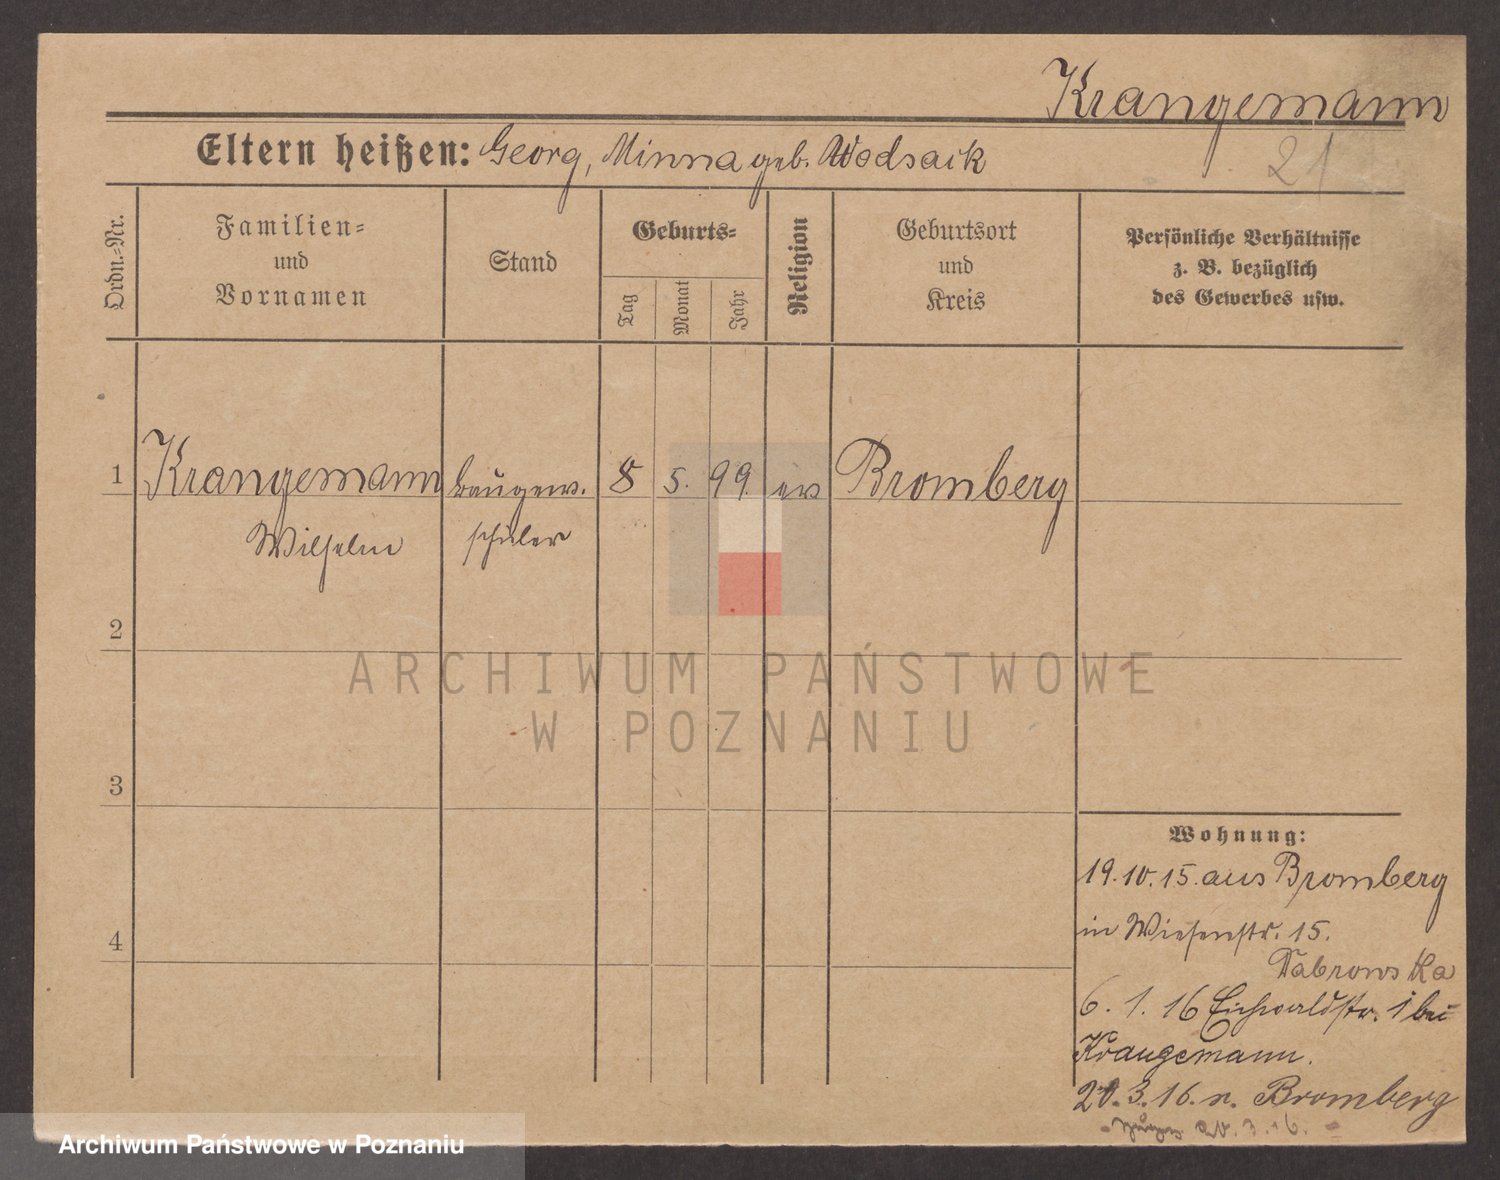 Krangemann
21
Eltern heißen: Georg, Minna geb. Wodsack
Ordn.-Nr.
Familien-
und
Vornamen
Stand
Geburts-
Tag
Monat
Jahr
Religion
Geburtsort
und
Kreis
Persönliche Verhältnisse
z. B. bezüglich
des Gewerbes usw.
1 Krangemann baugew. 8 5. 99. ev Bromberg
Wilhelm schüler
2
ARCHIWUM PAŃSTWOWE
W POZNANIU
3
Wohnung:
19.10.15. aus Bromberg
4
in Wiesenstr. 15.
Dabrowska
6. 1. 16 Eichwaldstr. 1 bei
Krangemann.
20.3.16. n. Bromberg
3.16.
Archiwum Państwowe w Poznaniu